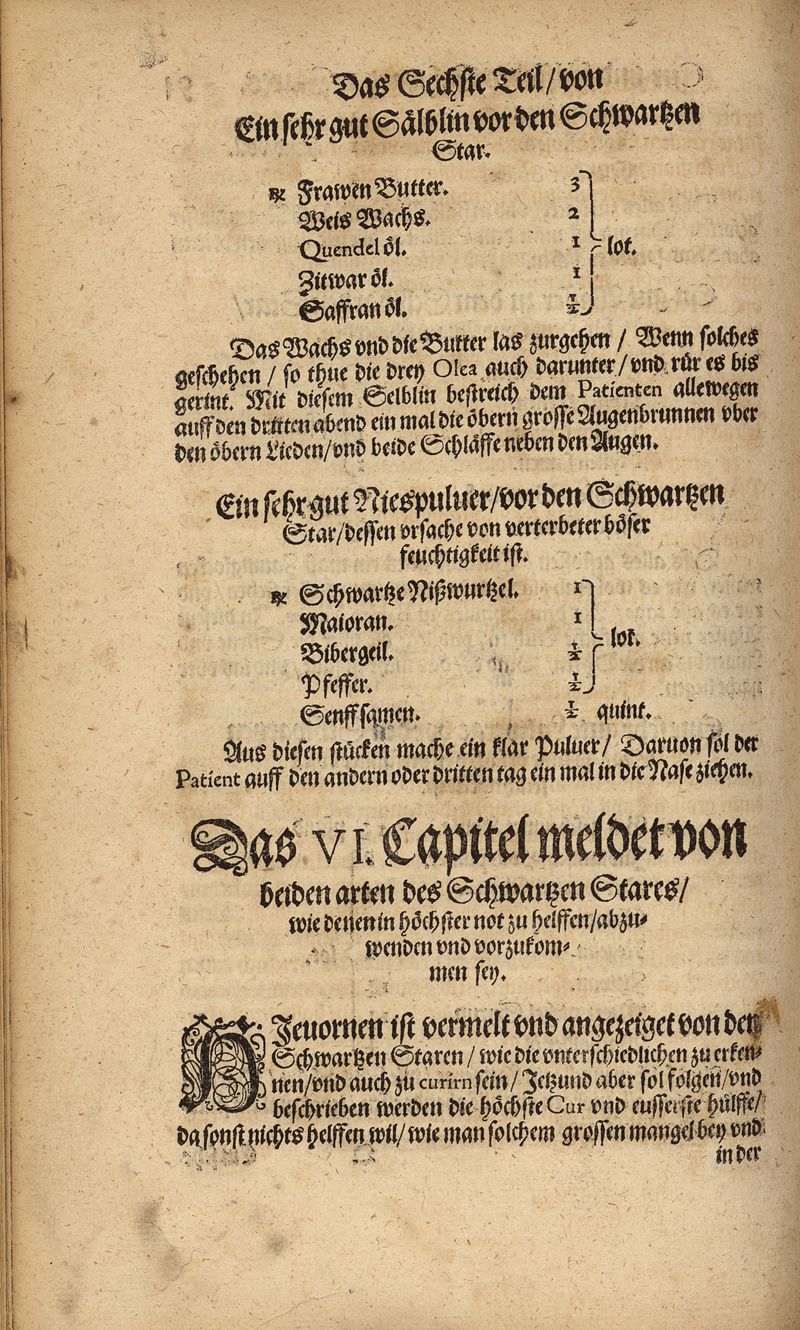 Das Sechste Teil/von
Ein sehr gut Sälblin vor den Schwartzen
Star.
℞ Frawen Butter. 3
Weis Wachs. 2
Quendel öl. 1 lot.
Zitwar öl. 1
Saffran öl. ½
Das Wachs vnd die Butter las zurgehen / Wenn solches
geschehen / so thue die drey Olea auch darunter/vnd rür es bis
gerint. Mit diesem Selblin bestreich dem Patienten allewegen
auff den dritten abend ein mal die öbern grosse Augenbrunnen vber
den öbern Lieden/vnd beide Schläffe neben den Augen.
Ein sehr gut Niespuluer/vor den Schwartzen
Star/dessen vrsache von verterbeter böser
feuchtigkeit ist.
℞ Schwartze Nißwurtzel. 1
Maioran. 1
Bibergeil. ½ lot.
Pfeffer. ½
Senffsamen. ½ quint.
Aus diesen stücken mache ein klar Puluer/ Daruon sol der
Patient auff den andern oder dritten tag ein mal in die Nase ziehen.
Das VI. Capitel meldet von
beiden arten des Schwartzen Stares/
wie denen in höchster not zu helffen/abzu⸗
wenden vnd vorzukom⸗
men sey.
HJeuornen ist vermelt vnd angezeiget von den
Schwartzen Staren / wie die vnterschiedlichen zu erken⸗
nen/vnd auch zu curirn sein/ Jetzund aber sol folgen/vnd
beschrieben werden die höchste Cur vnd eusserste hülffe/
da sonst nichts helffen wil/ wie man solchem grossen mangel bey vnd
in der